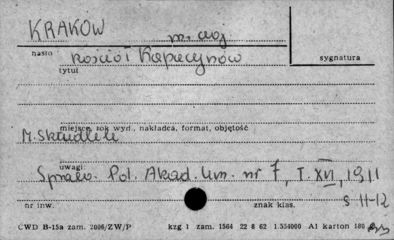 KRAKOW m. woj
hasło kościół Kapucynów sygnatura
tytuł
miejsce, rok wyd., nakładca, format, objętość
M. Skrudlik
uwagi
Spraw. Pol. Akad. Um. nr 7, T. XVI, 1911
s 11-12
nr inw. znak klas.
CWD B-15a zam. 2006/ZW/P kzg 1 zam. 1564 22 8 62 1.554000 A1 karton 180